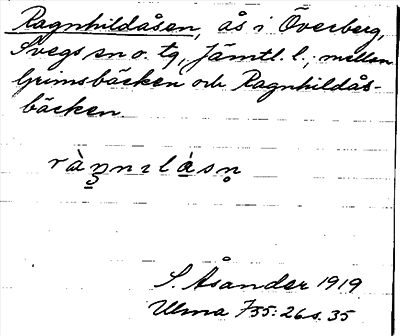 Ragnhildåsen, ås i Överberg,
Svegs sn o. tg, Jämtl. l., mellan
Grimsbäcken och Ragnhildås-
bäcken.
S. Åsander 1919
Ulma 735:26 s. 35